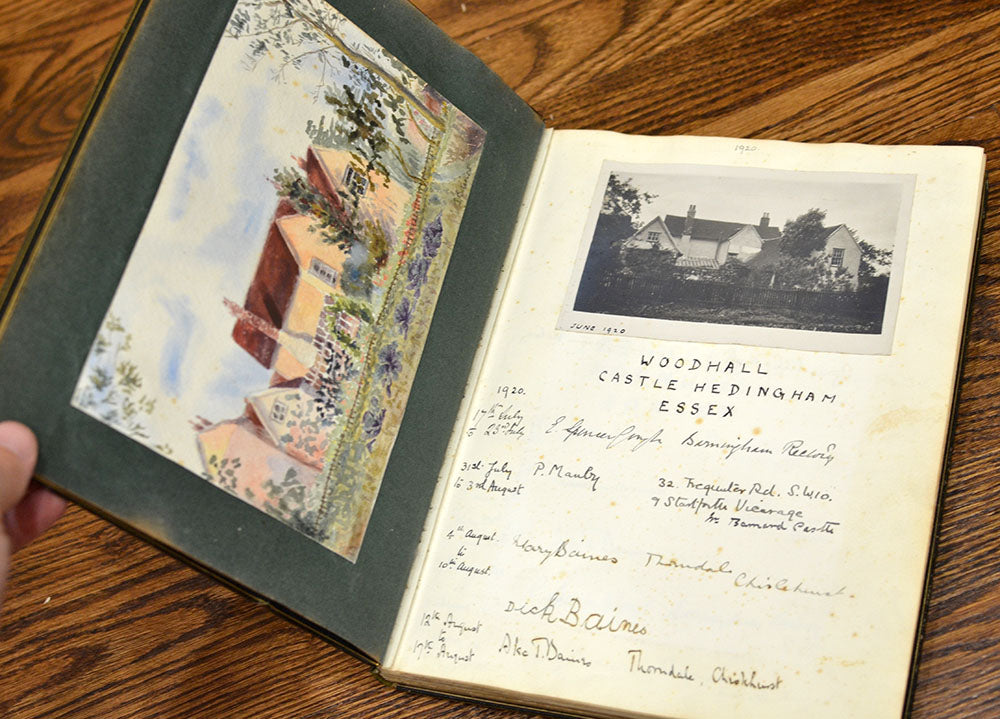 1920.
JUNE 1920
WOODHALL
CASTLE HEDINGHAM
ESSEX
1920.
17th July
to 23rd July E. Birmingham Rectory
31st July P. Manby 32. Tregunter Rd. S.W10.
to 3rd August 9 Startforth Vicarage
Nr. Barnard Castle
4th August. Mary Baines Thorndale
to Chislehurst.
10th August.
12th August Dick Baines
to
17th August T. Baines Thorndale, Chislehurst